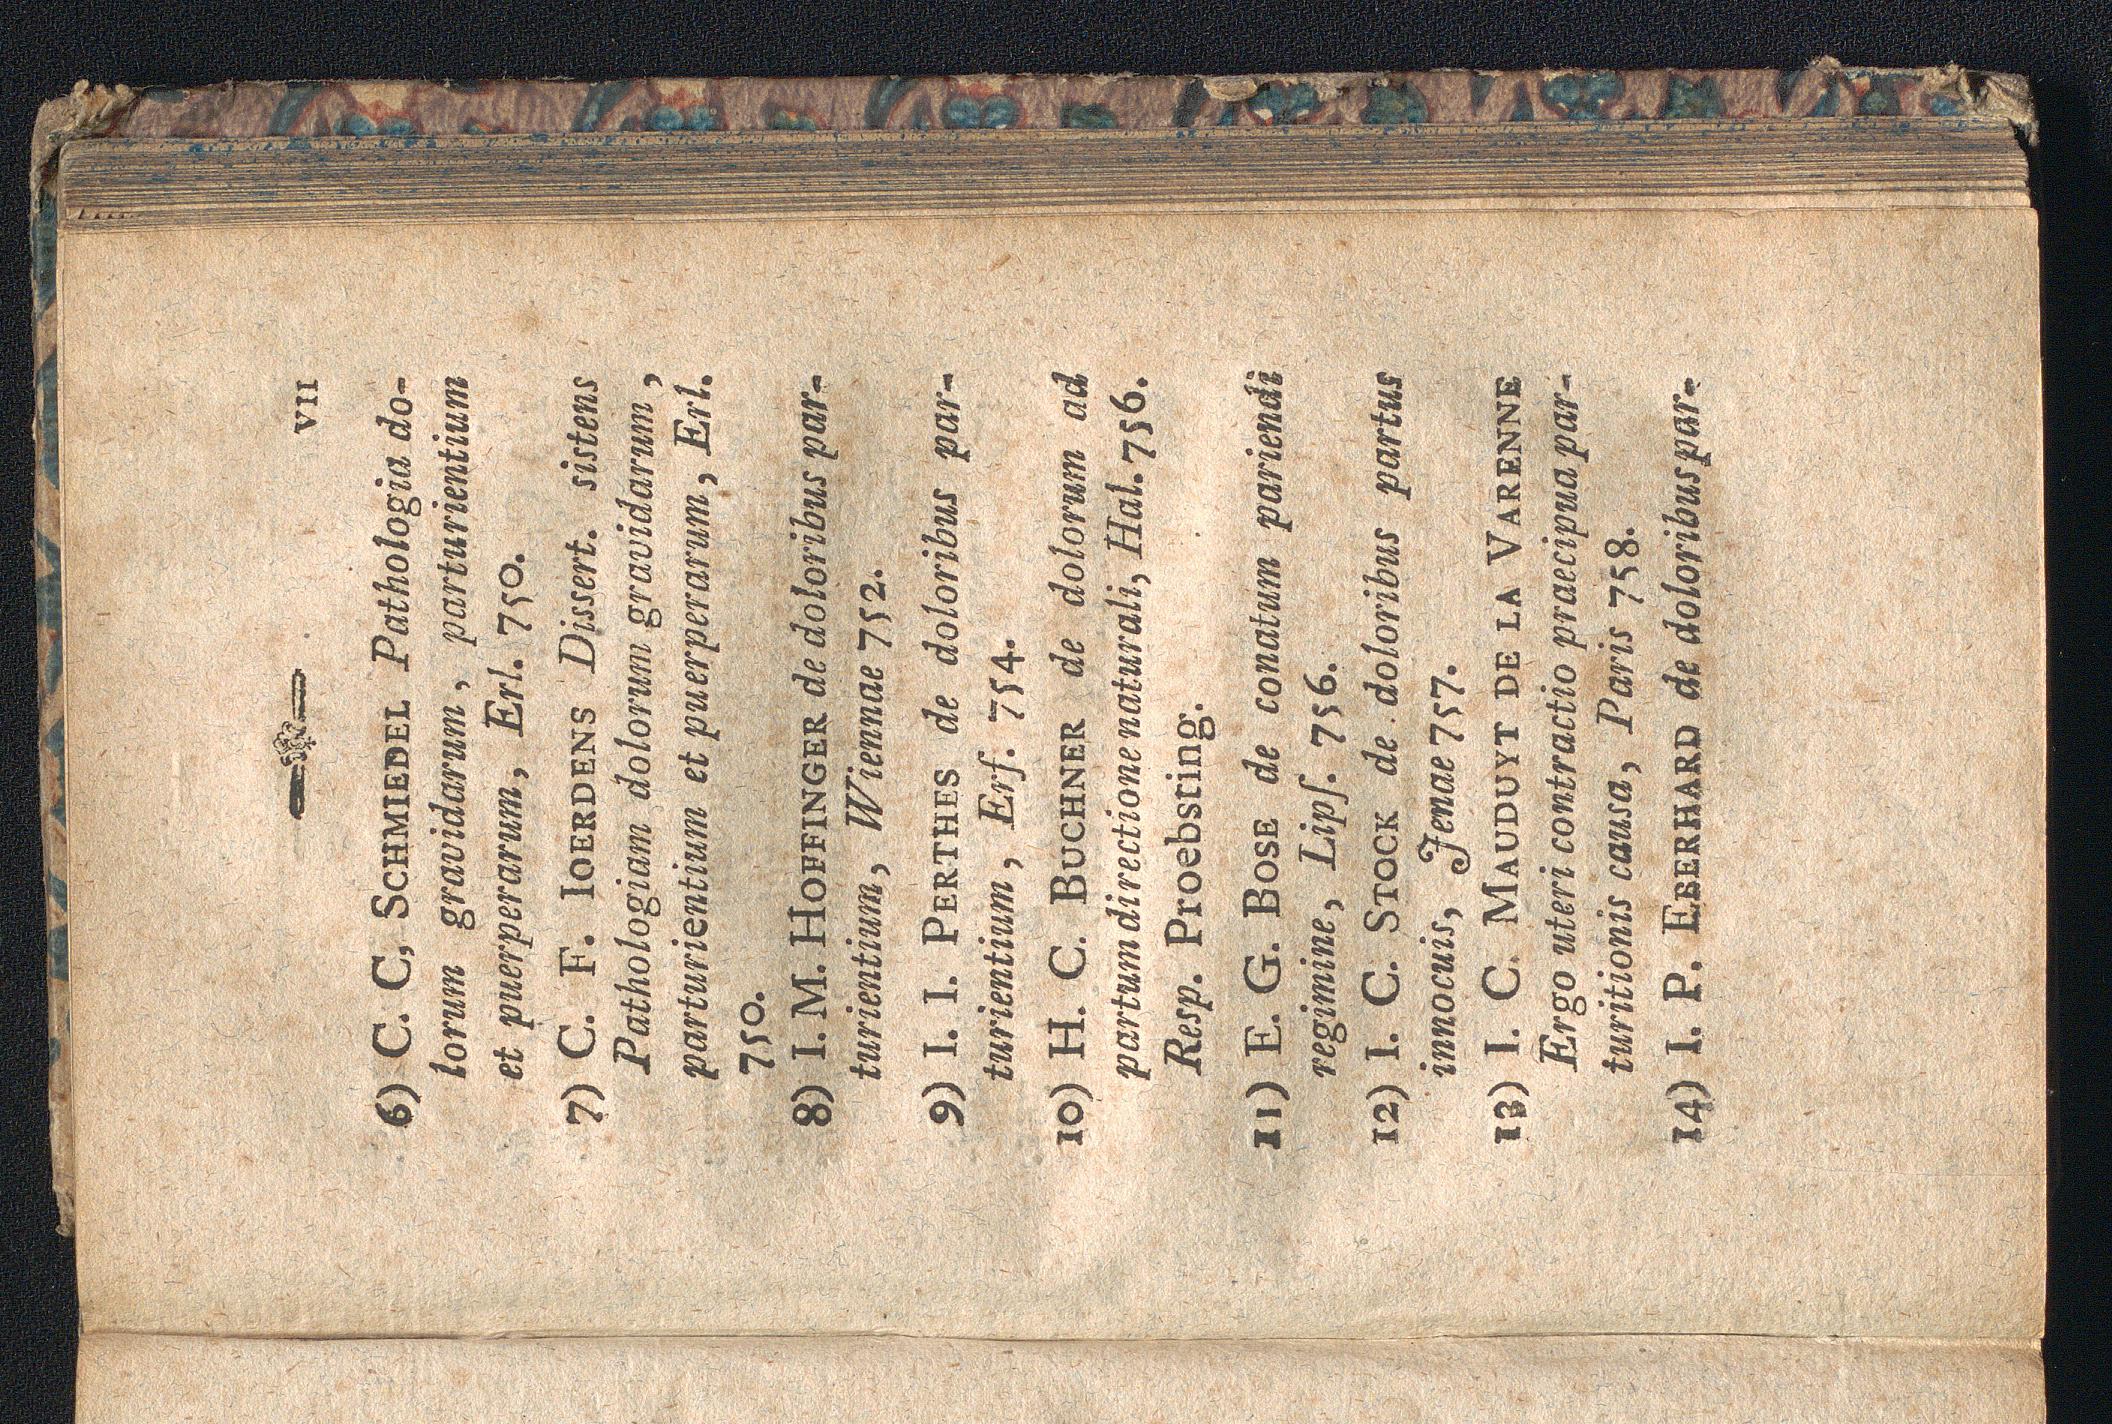 VII
6) C. C, SCHMIEDEL Pathologia do-
lorum gravidarum, parturientium
et puerperarum, Erl. 750.
7) C. F. IOERDENS Dissert. sistens
Pathologiam dolorum gravidarum,
parturientium et puerperarum, Erl.
750.
8) I. M. HOFFINGER de doloribus par-
turientium, Wiennae 752.
9) I. I. PERTHES de doloribus par-
turientium, Erf. 754.
10) H. C. BUCHNER de dolorum ad
partum directione naturali, Hal. 756.
Resp. Proebsting.
11) E. G. BOSE de conatum pariendi
regimine, Lipſ. 756.
12) I. C. STOCK de doloribus partus
innocuis, Jenae 757.
13) I. C. MAUDUYT DE LA VARENNE
Ergo uteri contractio praecipua par-
turitionis causa, Paris 758.
14) I. P. EBERHARD de doloribus par-